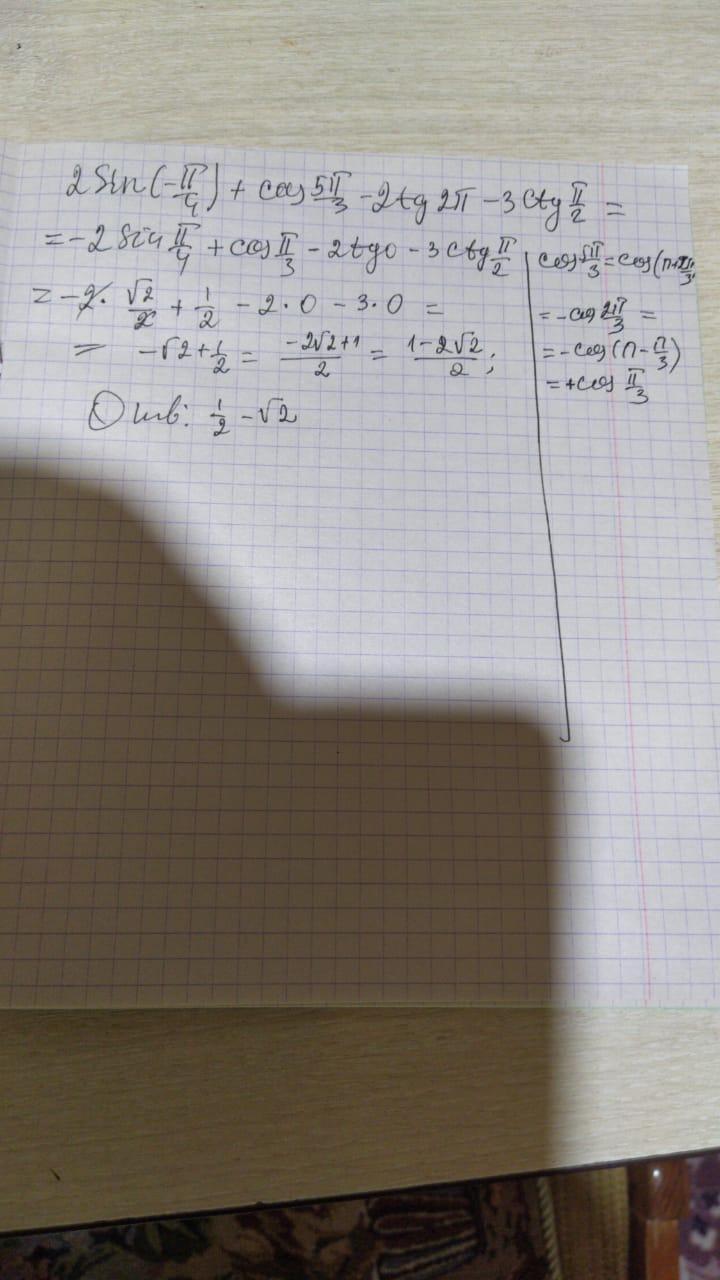 2 Sin(-π/4) + cos 5π/3 - 2tg 2π - 3 Ctg π/2 =
= -2 Sin π/4 + cos π/3 - 2tg0 - 3 Ctg π/2
= -2 · √2/2 + 1/2 - 2·0 - 3·0 =
= -√2 + 1/2 = (-2√2+1)/2 = (1-2√2)/2 ;
Отв: 1/2 - √2
cos 5π/3 = cos(π+2π/3)
= -cos 2π/3 =
= -cos(π - π/3)
= +cos π/3